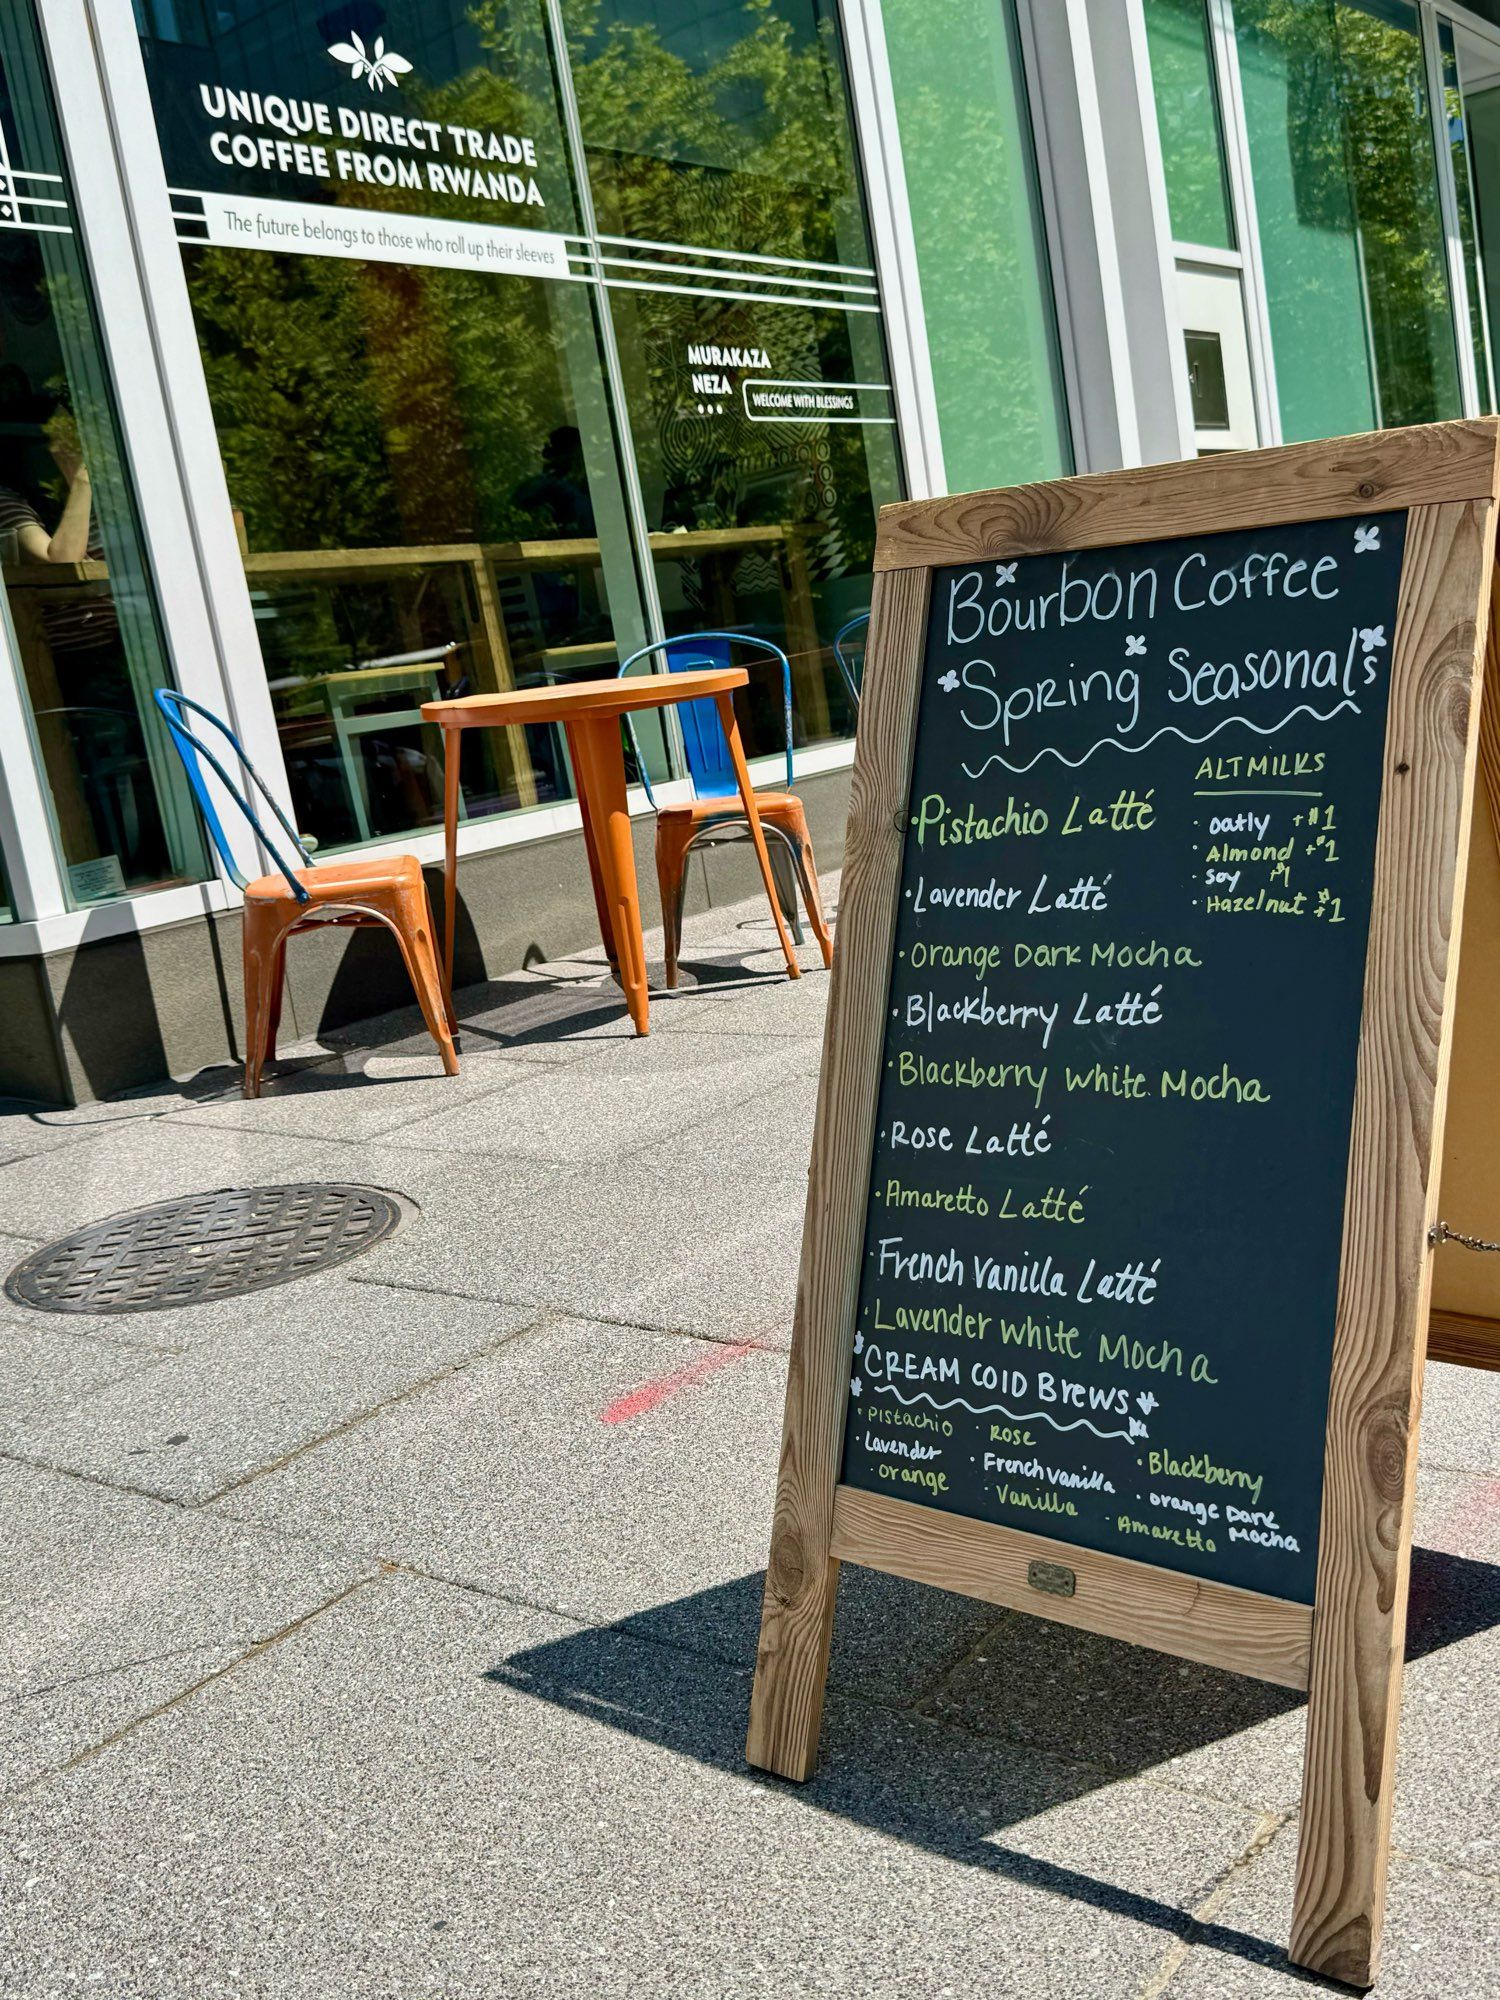 UNIQUE DIRECT TRADE
COFFEE FROM RWANDA
The future belongs to those who roll up their sleeves
MURAKAZA
NEZA
WELCOME WITH BLESSINGS
Bourbon Coffee
Spring Seasonals
ALT MILKS
· oatly +$1
· Almond +$1
· soy +$1
· Hazelnut +$1
· Pistachio Latté
· Lavender Latté
· Orange Dark Mocha
· Blackberry Latté
· Blackberry White Mocha
· Rose Latté
· Amaretto Latté
· French Vanilla Latté
· Lavender White Mocha
CREAM COLD BREWS
· Pistachio
· Lavender
· orange
· Rose
· French vanilla
· Vanilla
· Blackberry
· orange Dark
Mocha
· Amaretto